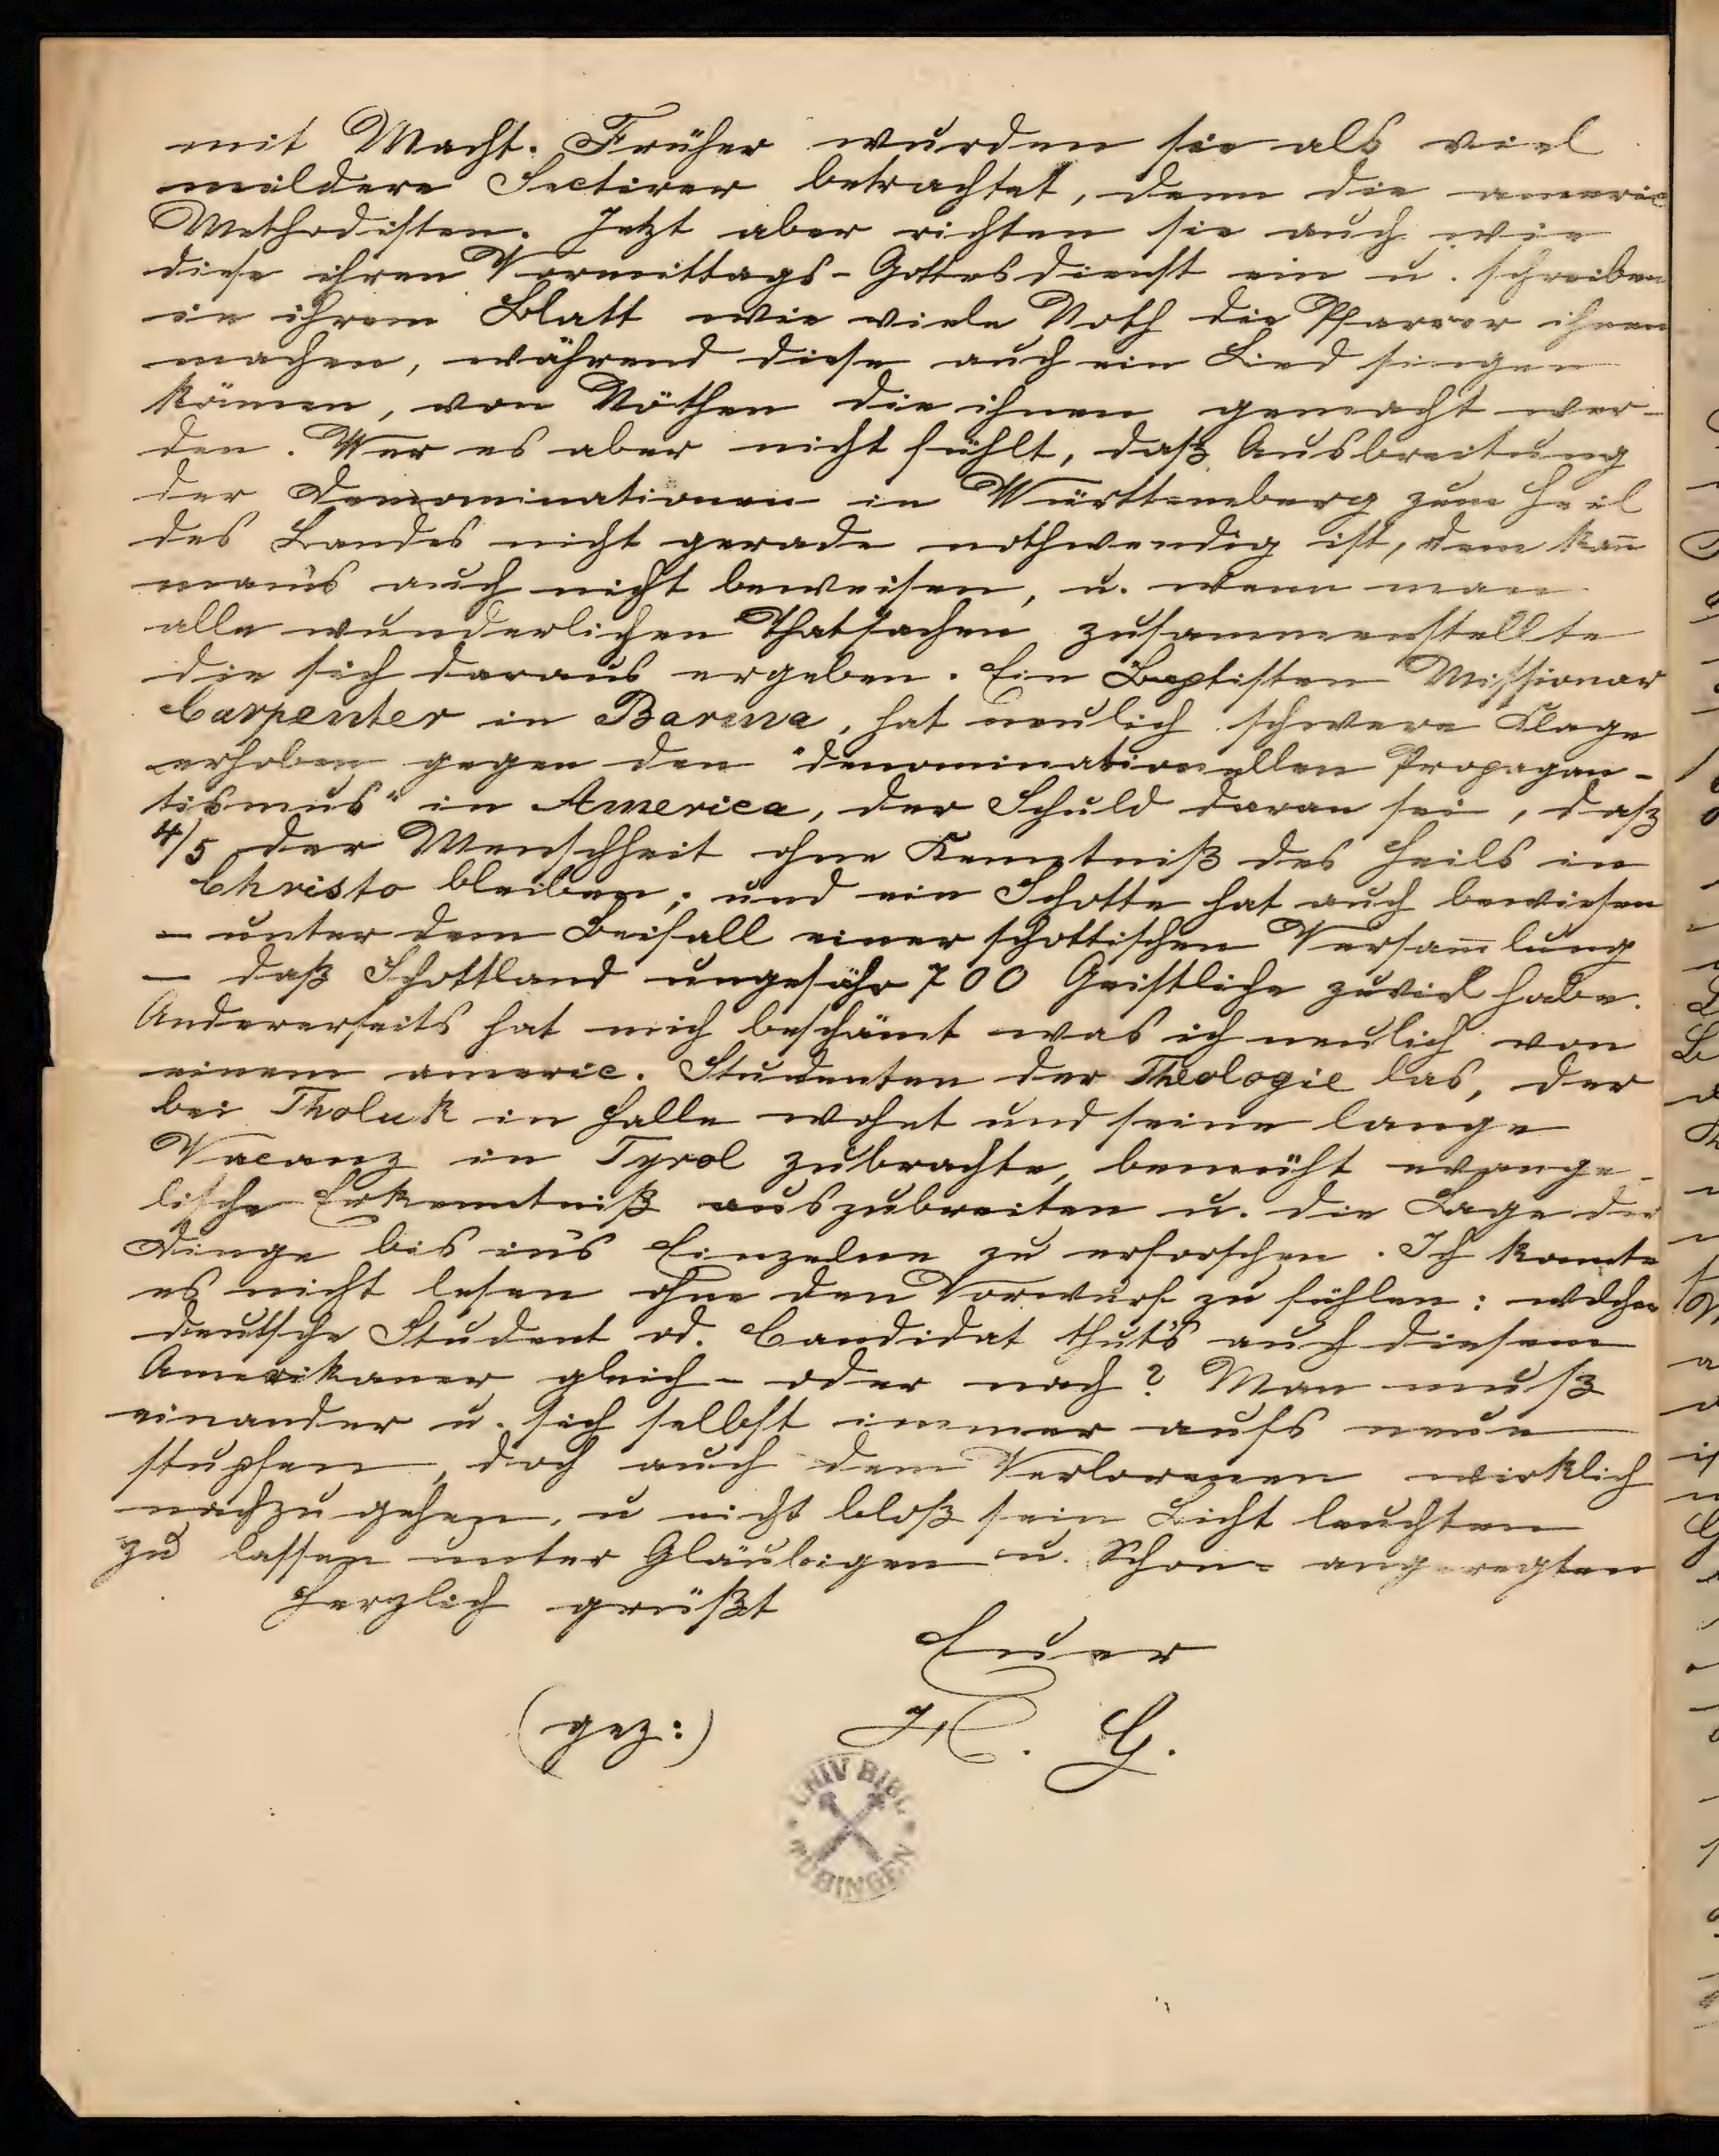 mit Macht. Früher wurden sie als viel
mildere Sectirer betrachtet, denn die americ
Methodisten. Jetzt aber richten sie auch wie
diese ihren Vormittags-Gottesdienst ein u. schreiben
in ihrem Blatt wie viele Noth die Pfarrer ihnen
machen, während diese auch ein Lied singen
könnnen, von Nöthen die ihnen gemacht wer-
den. Wer es aber nicht fühlt, daß Ausbreitung
der Denominationen in Württemberg zum Heil
des Landes nicht gerade nothwendig ist, dem kan̄
man's auch nicht beweisen, u. wenn man
alle wunderlichen Thatsachen zusammenstellte
die sich daraus ergeben. Ein Baptisten Missionar
Carpenter in Barma, hat neulich schwere Klage
erhoben gegen den "denominationellen Propagan-
tismus" in America, der Schuld daran sei, daß
4/5 der Menschheit ohne Kenntniß des Heils in
Christo bleiben; und ein Schotte hat auch bewiesen
- unter dem Beifall einer schottischen Versam̄lung
- daß Schottland ungefähr 700 Geistliche zuviel habe.
Andererseits hat mich beschämt was ich neulich von
einem americ. Studenten der Theologie las, der
bei Tholuk in Halle wohnt und seine lange
Vacanz in Tyrol zubrachte, bemüht evange-
lische Erkenntniß auszubreiten u. die Lage der
Dinge bis in's Einzelne zu erforschen. Ich konnte
es nicht lesen ohne den Vorwurf zu fühlen: welcher
deutsche Student od. Candidat thut's auch diesem
Amerikaner gleich- oder nach? Man muß
einander u. sich selbst immer aufs neue
stupfen, doch auch dem Verlorenen wirklich
nachzugehen, u nicht bloß sein Licht leuchten
zu lassen unter Gläubigen u. Schon- angeregten
Herzlich grüßt
Euer
(gez:) H. G.
UNIV BIBL
TÜBINGEN